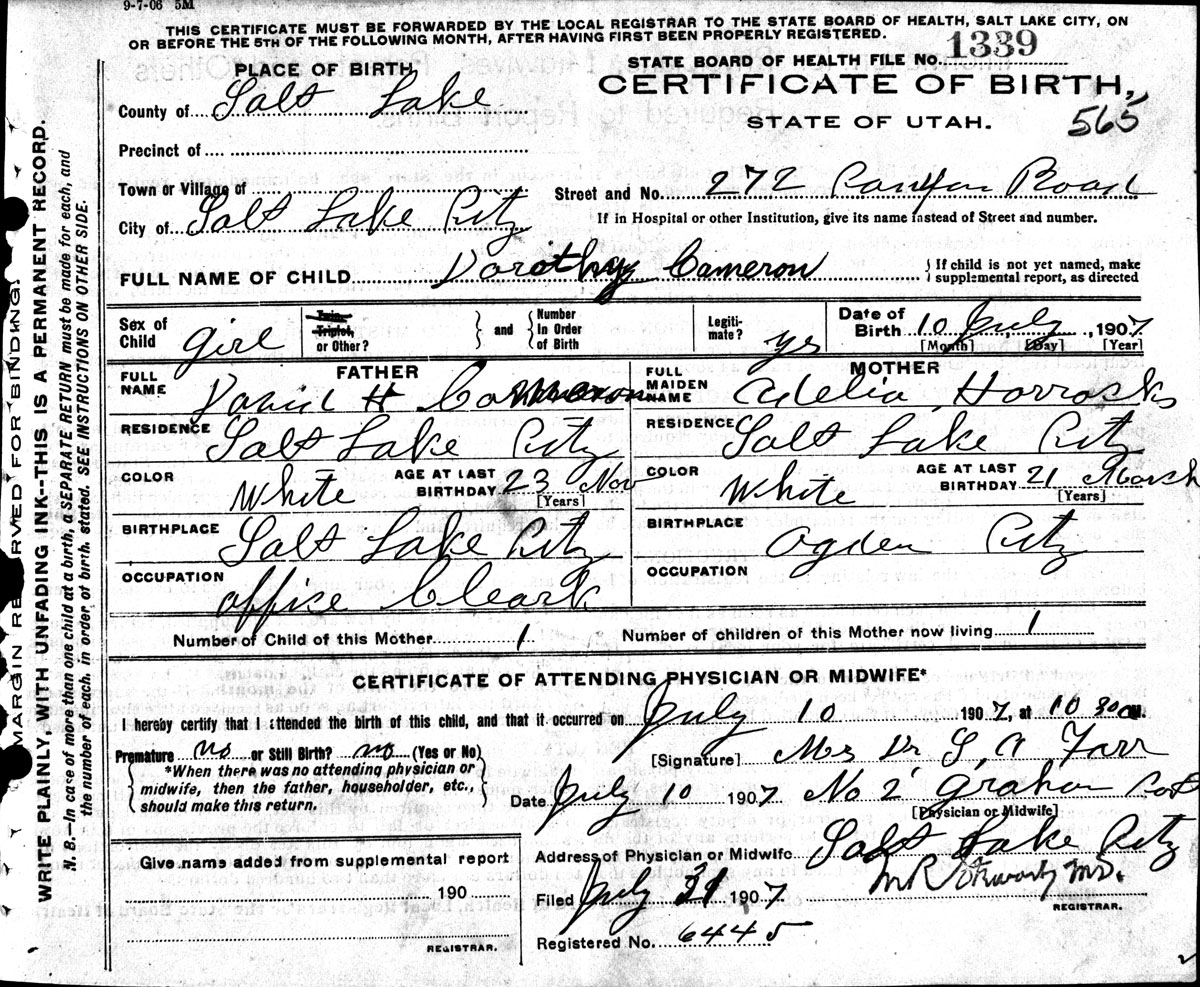 9-7-06 5M
THIS CERTIFICATE MUST BE FORWARDED BY THE LOCAL REGISTRAR TO THE STATE BOARD OF HEALTH, SALT LAKE CITY, ON
OR BEFORE THE 5TH OF THE FOLLOWING MONTH, AFTER HAVING FIRST BEEN PROPERLY REGISTERED.
STATE BOARD OF HEALTH FILE No. 1339
PLACE OF BIRTH
CERTIFICATE OF BIRTH,
County of Salt Lake
STATE OF UTAH.
565
Precinct of
Town or Village of
Street and No. 272 Canyon Road
City of Salt Lake City
If in Hospital or other Institution, give its name instead of Street and number.
FULL NAME OF CHILD Dorothy Cameron
If child is not yet named, make
supplemental report, as directed
Sex of Child girl
Twin, Triplet, or Other?
and
Number In Order of Birth
Legitimate? yes
Date of Birth 10 July, 1907
[Month] [Day] [Year]
FATHER
MOTHER
FULL NAME David H Cameron
FULL MAIDEN NAME Adelia Horrocks
RESIDENCE Salt Lake City
RESIDENCE Salt Lake City
COLOR White AGE AT LAST BIRTHDAY 23 Nov
[Years]
COLOR White AGE AT LAST BIRTHDAY 21 March
(Years]
BIRTHPLACE Salt Lake City
BIRTHPLACE Ogden City
OCCUPATION office Cleark
OCCUPATION
Number of Child of this Mother 1
Number of children of this Mother now living 1
CERTIFICATE OF ATTENDING PHYSICIAN OR MIDWIFE*
I hereby certify that I attended the birth of this child, and that it occurred on July 10 1907, at 10 30 M.
Premature no or Still Birth? no (Yes or No)
[Signature] Mrs Dr S A Farr
*When there was no attending physician or
midwife, then the father, householder, etc.,
should make this return.
Date July 10 1907 No 2 Graham
[Physician or Midwife]
Give name added from supplemental report
190
REGISTRAR.
Address of Physician or Midwife Salt Lake City
Filed July 31 1907 M.D.
REGISTRAR.
Registered No. 6445
MARGIN RESERVED FOR BINDING.
WRITE PLAINLY, WITH UNFADING INK--THIS IS A PERMANENT RECORD.
N. B.—In case of more than one child at a birth, a SEPARATE RETURN must be made for each, and
the number of each, in order of birth, stated. SEE INSTRUCTIONS ON OTHER SIDE.